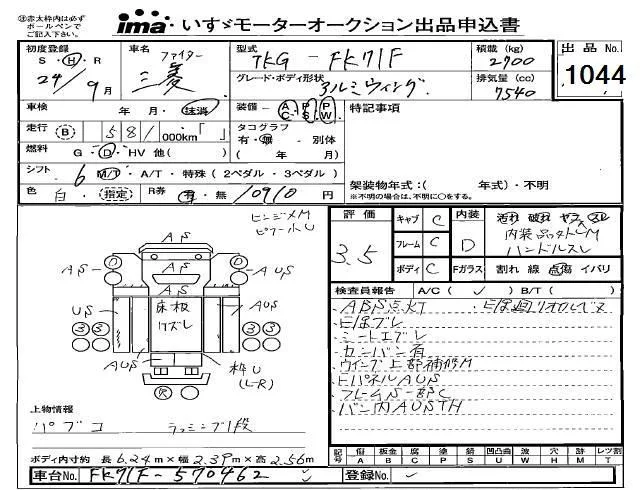 ㊟赤太枠内は必ず
ボールペンで
ご記入下さい。
ima いすゞモーターオークション出品申込書
初度登録 車名 型式 積載(kg) 出品No.
S・H・R ファイター TKG - FK71F 2700
24/9月 三菱 グレード・ボディ形状 排気量(cc) 1044
アルミウィング 7540
車検 年 月・抹消 装備 - AC PS PW 特記事項
走行 B 581,000km「 」 タコグラフ
有・無 - 別体
燃料 G・D・HV 他( ) ( 年 月)
シフト 6 M/T・A/T・特殊(2ペダル・3ペダル)
架装物年式:( 年式)・不明
色 白・指定 R券 有・無 10910円 ※不明の場合は、不明に○をする。
評価 キャブ C 内装 汚れ 破れ ヤケ スレ
3.5 フレーム C D 内装品タトレM
ハンドルスレ
ボディ C Fガラス 割れ 線 点傷 イバリ
検査員報告 A/C( ✓ ) B/T( )
ABS点灯
シートエブレ
カンバン有
ウイング上部補修M
ヒパネルAUS
フレームS一部C
バン内AUSTH
AS
AS
AS D D AUS
US 床板 AUS
ワズレ
3 3 3 3
AUS 枠U
(L-R)
上物情報
パブコ ラッシング1段
ボディ内寸約 長6.24m×幅2.39m×高2.56m
記号 傷 板金 腐 塗 錆 凹凸曲 波 穴 跡 レツ割
A B C P S U W H M T
車台No. FK71F-570462 登録No.